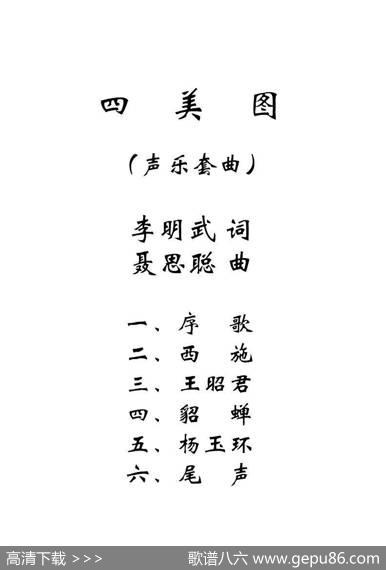 四 美 图
（声乐套曲）
李明武 词
聂思聪 曲
一、序 歌
二、西 施
三、王昭君
四、貂 蝉
五、杨玉环
六、尾 声
高清下载 >>> 歌谱八六 www.gepu86.com